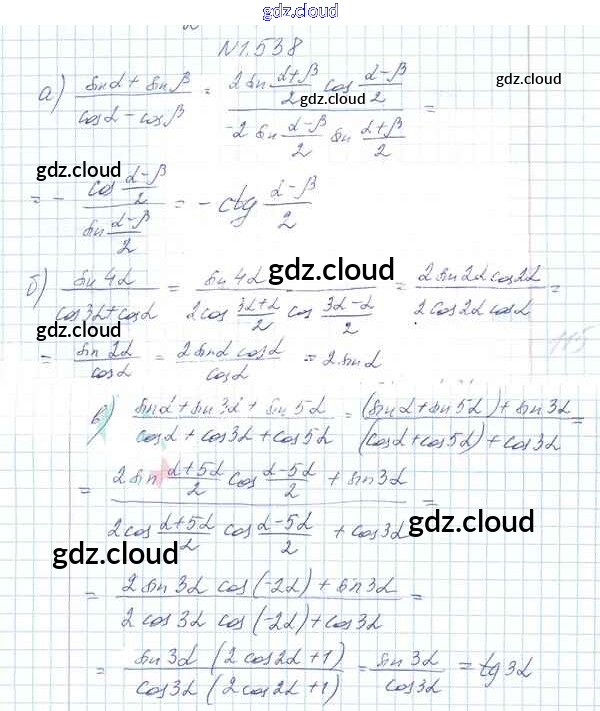 gdz.cloud
N1.538
а) (sinα + sinβ)/(cosα - cosβ) = (2 sin (α+β)/2 cos (α-β)/2)/(-2 sin (α-β)/2 sin (α+β)/2) =
gdz.cloud
gdz.cloud
= - (cos (α-β)/2)/(sin (α-β)/2) = - ctg (α-β)/2
gdz.cloud
б) (sin 4α)/(cos3α + cosα) = (sin 4α)/(2cos (3α+α)/2 cos (3α-α)/2) = (2 sin 2α cos2α)/(2 cos 2α cosα) =
gdz.cloud
= (sin 2α)/(cosα) = (2 sinα cosα)/(cosα) = 2 sinα
115
в) (sinα + sin 3α + sin 5α)/(cosα + cos3α + cos 5α) = ((sinα + sin 5α) + sin 3α)/((cosα + cos5α) + cos 3α) =
= (2 sin (α+5α)/2 cos (α-5α)/2 + sin3α)/(2cos (α+5α)/2 cos (α-5α)/2 + cos3α) =
gdz.cloud
gdz.cloud
= (2 sin 3α cos(-2α) + sin3α)/(2 cos 3α cos(-2α) + cos3α) =
= (sin 3α (2 cos2α + 1))/(cos3α (2 cos2α + 1)) = (sin 3α)/(cos3α) = tg 3α